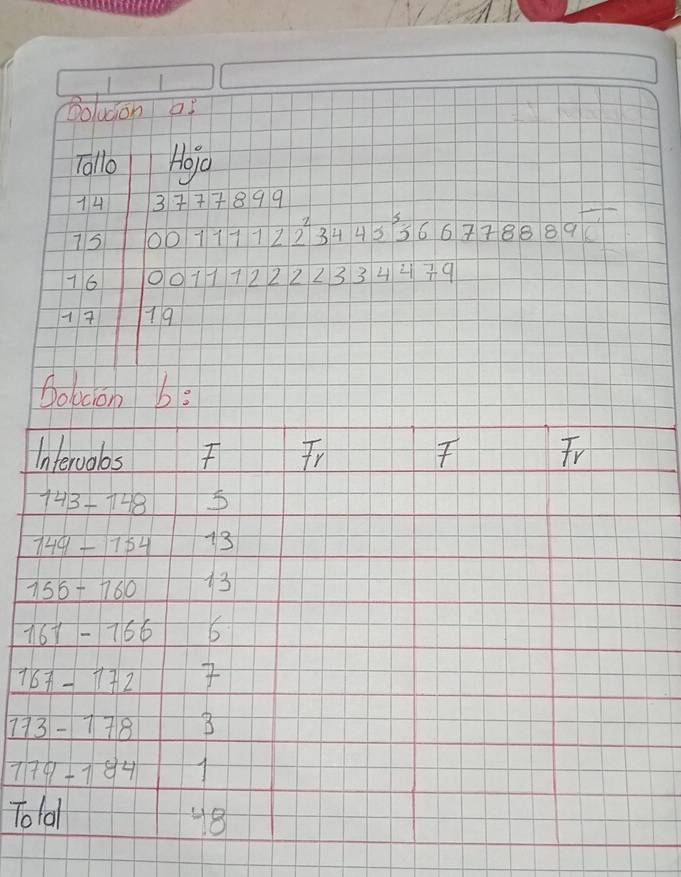 Solución a:
Tallo Hoja
14 3777899
15 00111122²3445⁵566778889
16 0011122223344479
17 19
Solución b:
Intervalos F Fr F Fr
143-148 5
149-154 13
155-160 13
161-166 6
167-172 7
173-178 3
179-184 1
Total 48